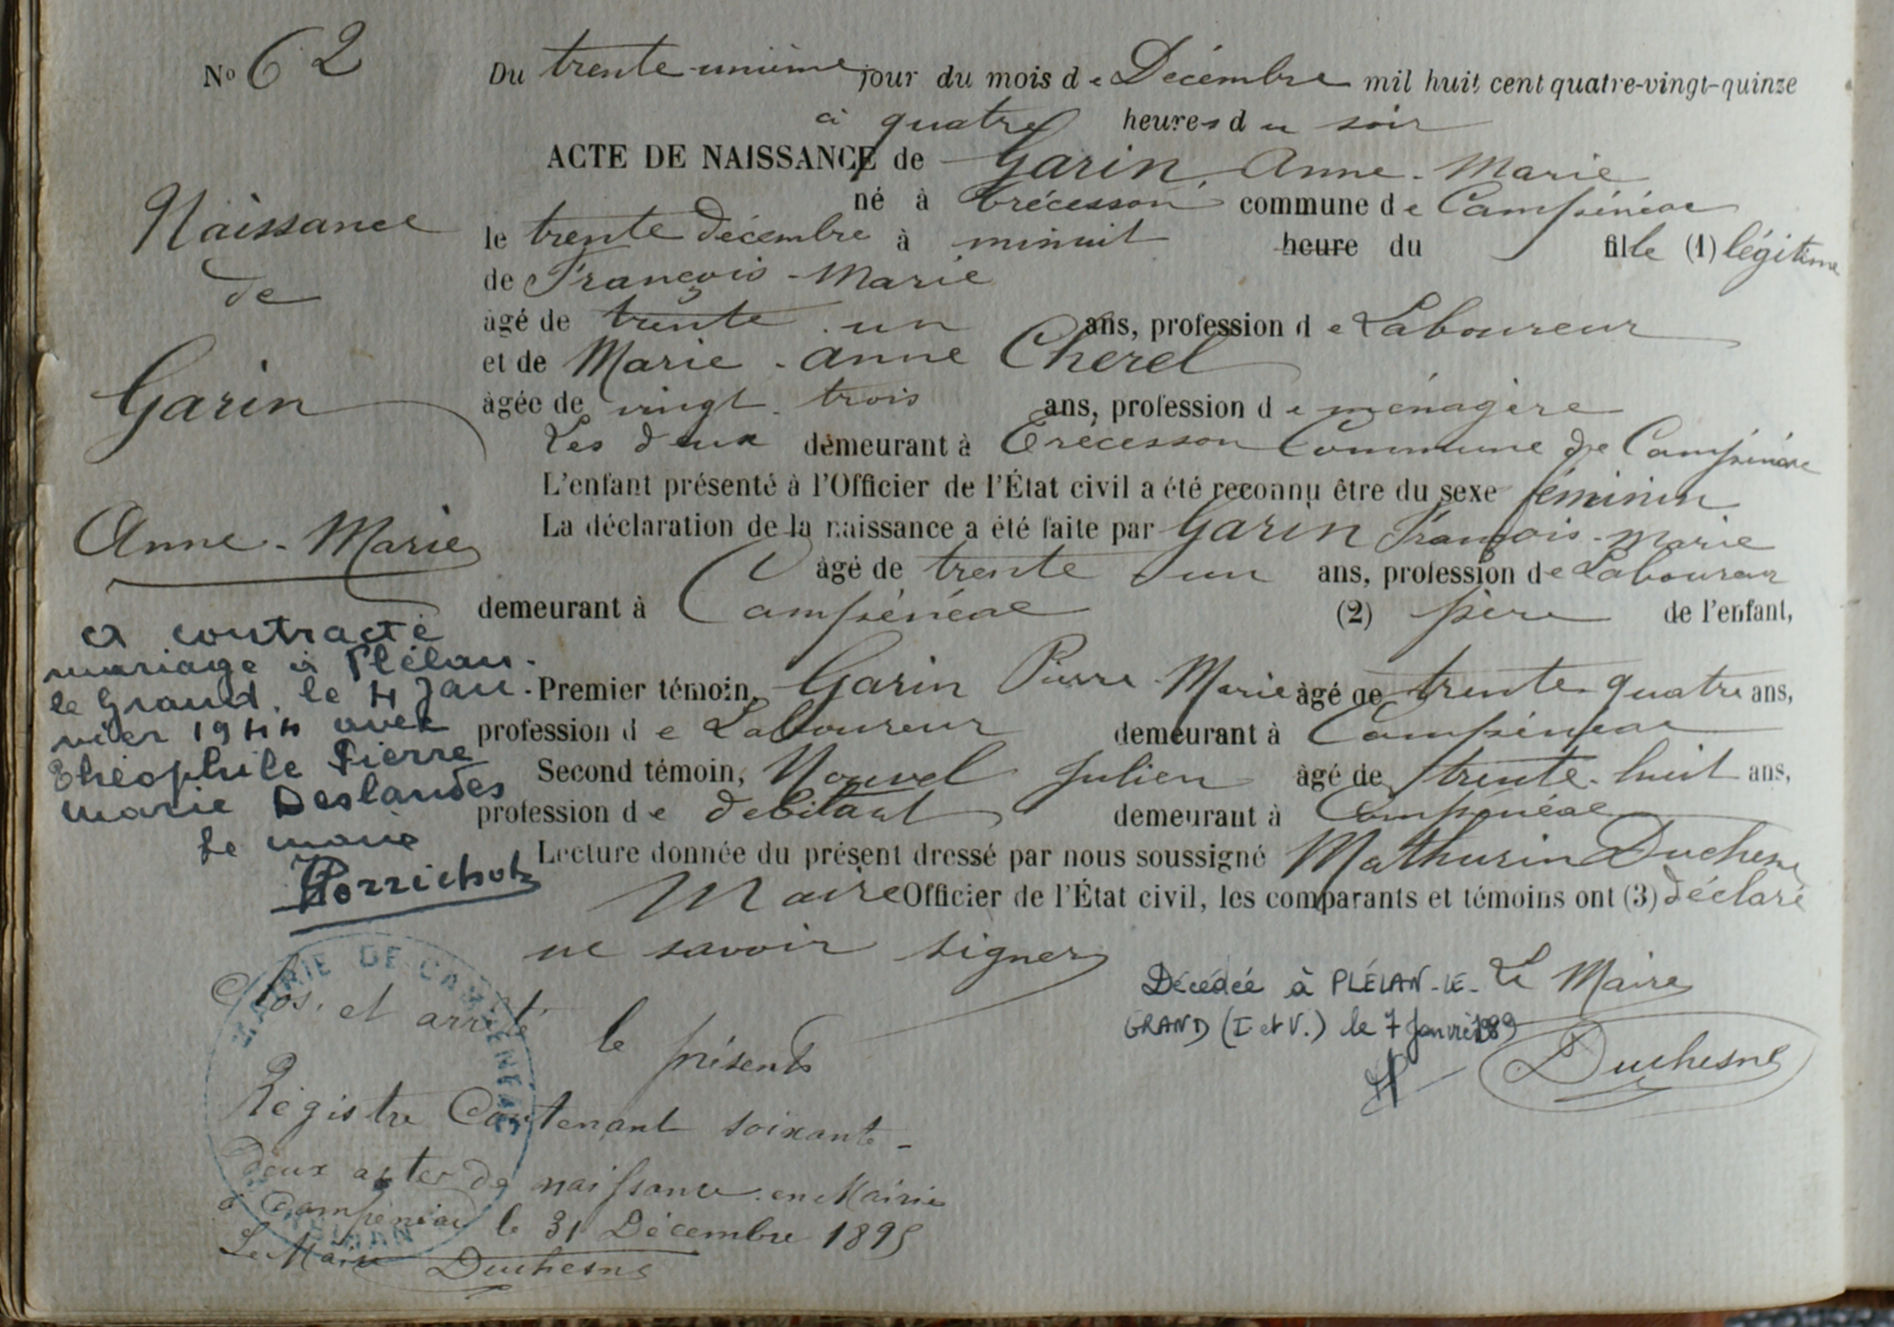 No 62
Naissance
de
Garin
Anne-Marie
a contracté
mariage à Plélan-
le Grand, le 4 Jan-
vier 1944 avec
Théophile Pierre
Marie Deslandes
Le maire
Du trente-unième jour du mois de Décembre mil huit cent quatre-vingt-quinze
à quatre heures du soir
ACTE DE NAISSANCE de Garin Anne-Marie
né à Trécesson commune de Campénéac
le trente Décembre à minuit heure du fille (1) légitime
de François-Marie
âgé de trente un ans, profession de Laboureur
et de Marie-Anne Cherel
âgée de vingt-trois ans, profession de ménagère
Les deux demeurant à Trécesson Commune de Campénéac
L'enfant présenté à l'Officier de l'État civil a été reconnu être du sexe féminin
La déclaration de la naissance a été faite par Garin François-Marie
âgé de trente un ans, profession de Laboureur
demeurant à Campénéac (2) père de l'enfant,
Premier témoin, Garin Pierre Marie âgé de trente quatre ans,
profession de Laboureur demeurant à Campénéac
Second témoin, Nouvel Julien âgé de trente-huit ans,
profession de debitant demeurant à Campénéac
Lecture donnée du présent dressé par nous soussigné Mathurin Duchesne
Maire Officier de l'État civil, les comparants et témoins ont (3) déclaré
ne savoir signer
Le Maire
Duchesne
Décédée à PLÉLAN-LE-
GRAND (I et V.) le 7 Janvier 1989
Clos et arrêté
le présent
Régistre Contenant soixante-
deux actes de naissance en Mairie
à Campénéac le 31 Décembre 1895
Le Maire Duchesne
MAIRIE DE CAMPÉNÉAC